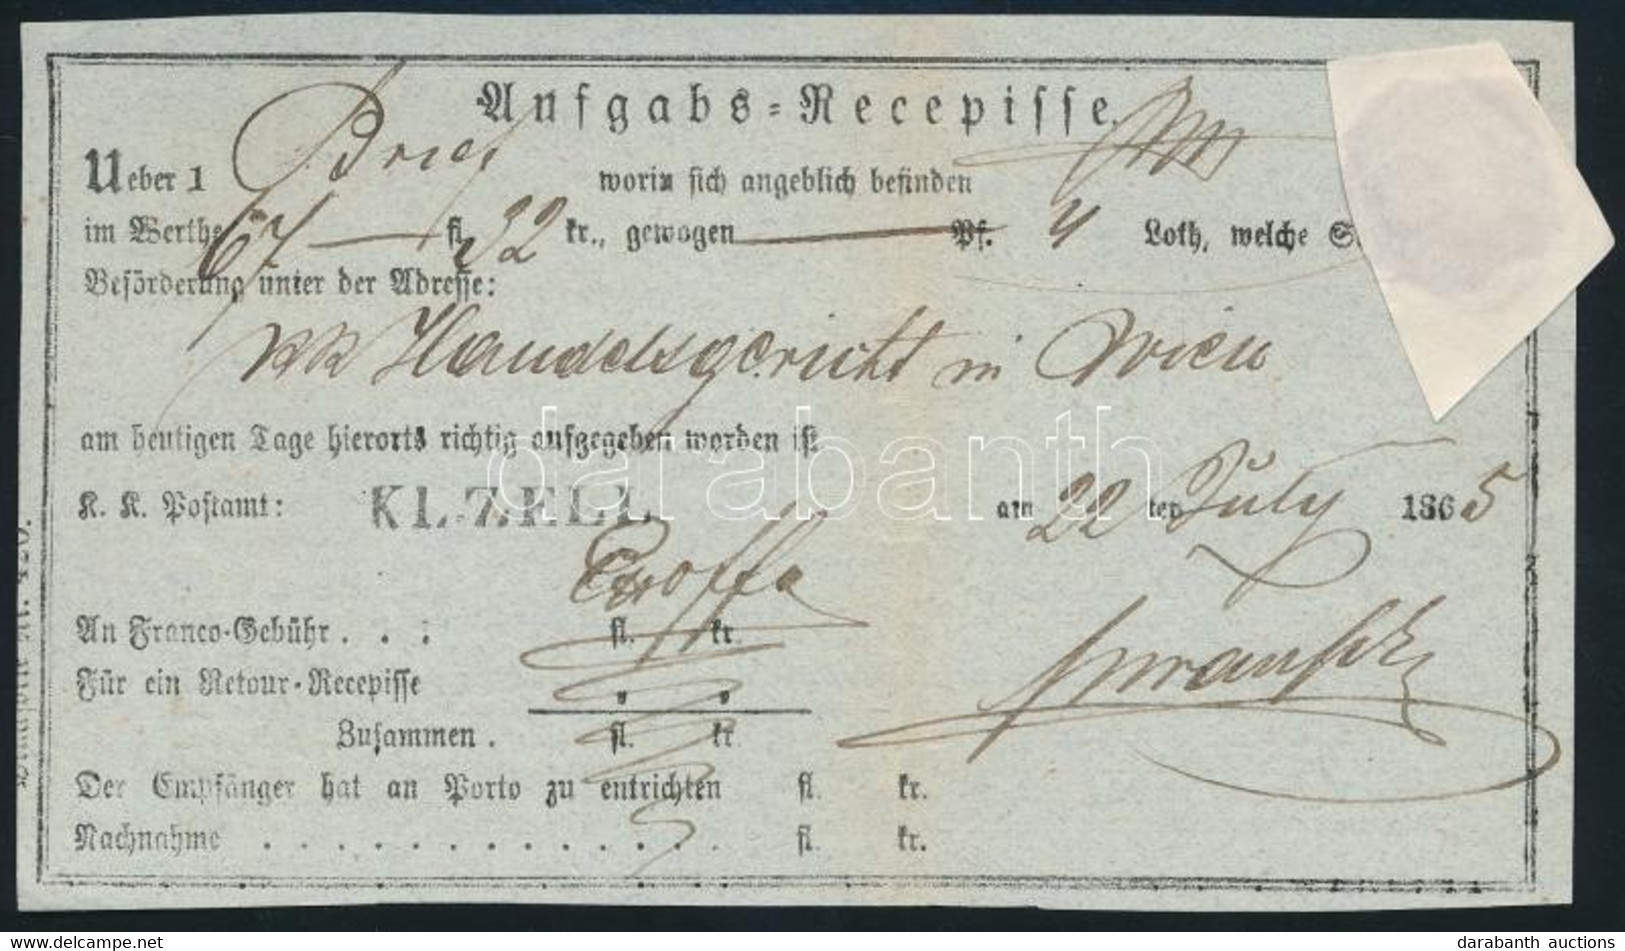 Aufgabs-Recepisse.
Ueber 1 Brief worin sich angeblich befinden
im Werthe 67 — fl. 32 kr., gewogen — Pf. 4 Loth, welche
Beförderung unter der Adresse:
kk Handelsgericht in Wien
am heutigen Tage hierorts richtig aufgegeben worden ist
K. K. Postamt: KL.ZELL am 22 ten July 1865
An Franco-Gebühr . . . fl. kr.
Für ein Retour-Recepisse " "
Zusammen . fl. kr.
Der Empfänger hat an Porto zu entrichten fl. kr.
Nachnahme . . . . . . . . . . . . . fl. kr.
darabanth
www.delcampe.net
darabanth auctions